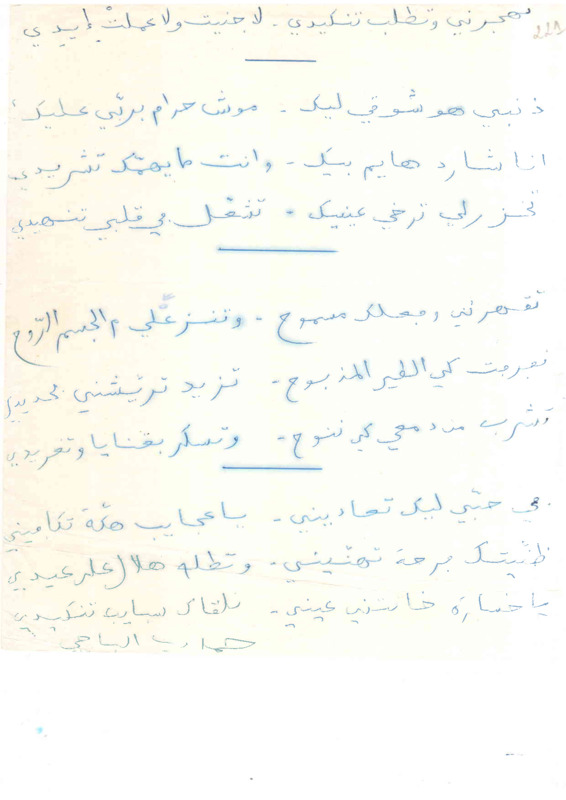 تهجرني وتطلب تنكيدي - لا جنيت ولا عملت إيدي
221
ذنبي هو شوقي ليك - موش حرام بربّي عليك
انا شارد هايم بيك - وانت ما يهمّك تشريدي
تخزرلي ترخي عينيك - تشعّل في قلبي تنهيدي
تقهرني وفعلك مسموح - وتنزعلي م الجسم الرّوح
نعوم كي الطير المذبوح - تزيد تريّشني بحديدي
تشرب من دمعي كي ننوح - وتسكر بغنايا وتغريدي
في حبّي ليك تعاديني - يا عجايب هكّه تكاميني
ظنّيتك برحمة تهنّيني - وتطلّه هلال على عيدي
يا خسارة خانتني عيني - نلقاك سبايب تنكيدي